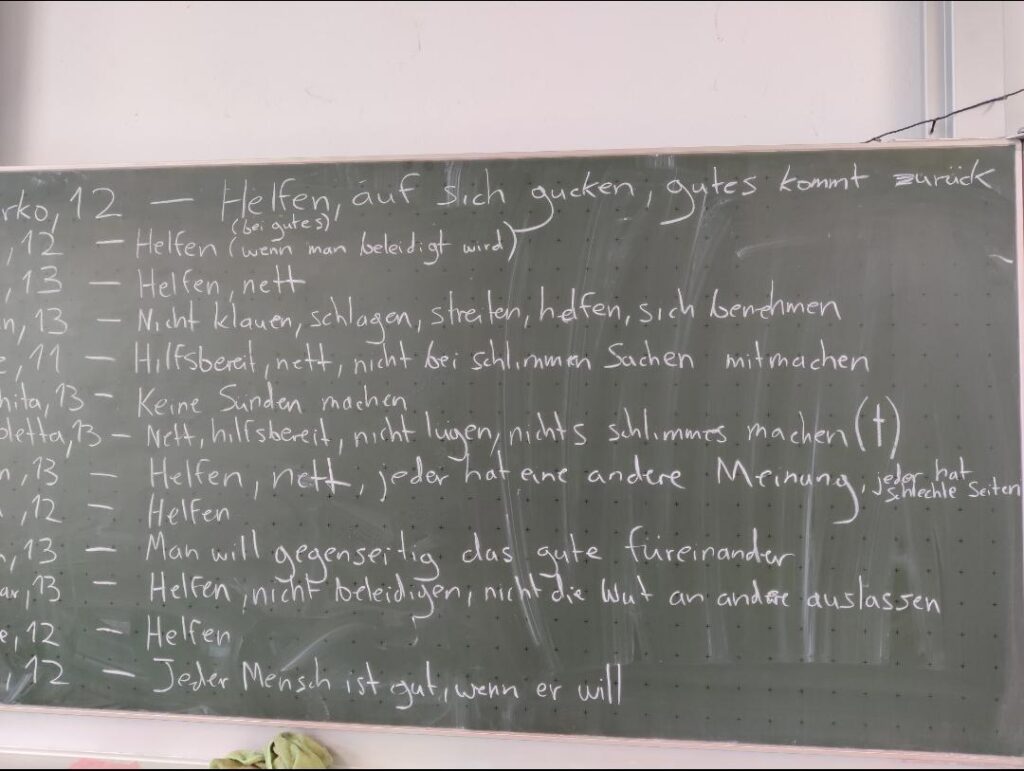 rko, 12 — Helfen, auf sich gucken, gutes kommt zurück
(bei gutes)
, 12 — Helfen (wenn man beleidigt wird)
, 13 — Helfen, nett
n, 13 — Nicht klauen, schlagen, streiten, helfen, sich benehmen
e, 11 — Hilfsbereit, nett, nicht bei schlimmen Sachen mitmachen
hita, 13 — Keine Sünden machen
oletta, 13 — Nett, hilfsbereit, nicht lügen, nichts schlimmes machen (†)
n, 13 — Helfen, nett, jeder hat eine andere Meinung, jeder hat schlechte Seiten
, 12 — Helfen
n, 13 — Man will gegenseitig das gute füreinander
ar, 13 — Helfen, nicht beleidigen, nicht die Wut an andere auslassen
e, 12 — Helfen
, 12 — Jeder Mensch ist gut, wenn er will